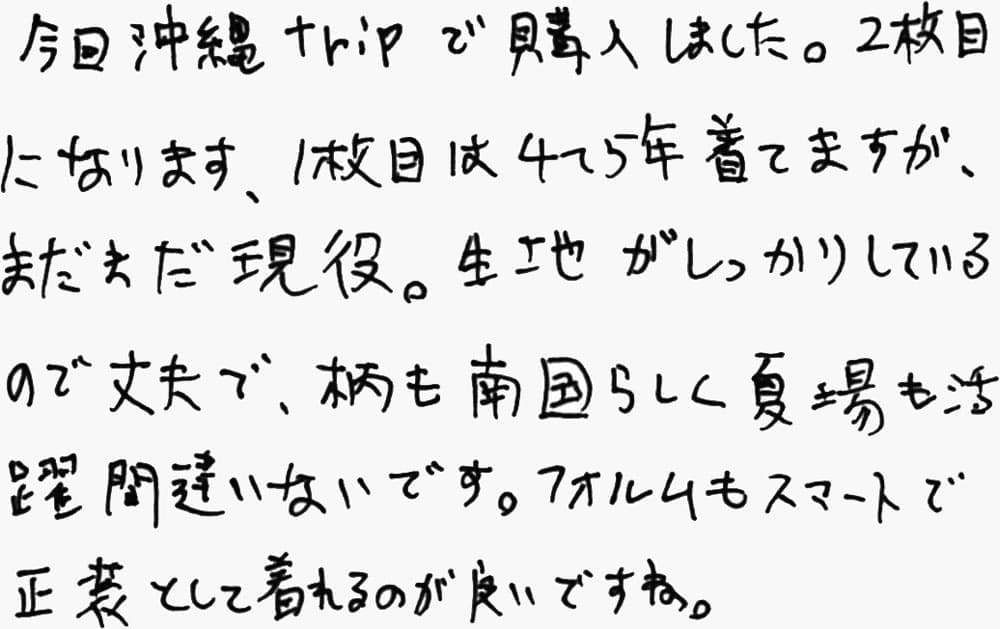 今回沖縄tripで購入しました。2枚目
になります、1枚目は4て5年着てますが、
まだまだ現役。生地がしっかりしている
ので丈夫で、柄も南国らしく夏場も活
躍間違いないです。フォルムもスマートで
正装として着れるのが良いですね。